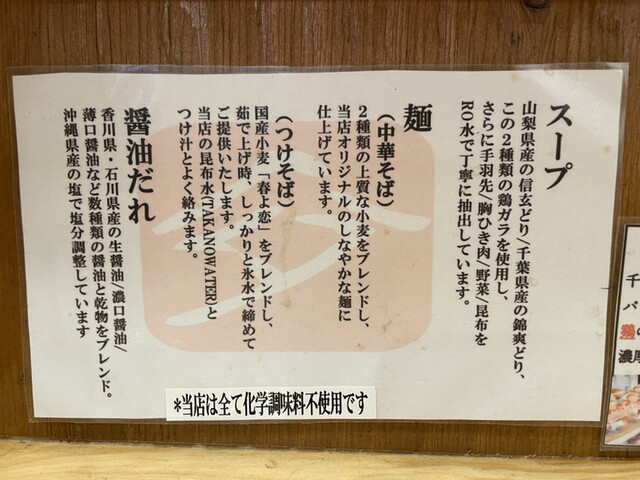 スープ
山梨県産の信玄どり/千葉県産の錦爽どり、
この2種類の鶏ガラを使用し、
さらに手羽先/胸ひき肉/野菜/昆布を
RO水で丁寧に抽出しています。
麺
(中華そば)
2種類の上質な小麦をブレンドし、
当店オリジナルのしなやかな麺に
仕上げています。
(つけそば)
国産小麦「春よ恋」をブレンドし、
茹で上げ時、しっかりと氷水で締めて
ご提供いたします。
当店の昆布水(TAKANOWATER)と
つけ汁とよく絡みます。
醤油だれ
香川県・石川県産の生醤油/濃口醤油/
薄口醤油など数種類の醤油と乾物をブレンド。
沖縄県産の塩で塩分調整しています
*当店は全て化学調味料不使用です
千
バ
濃厚